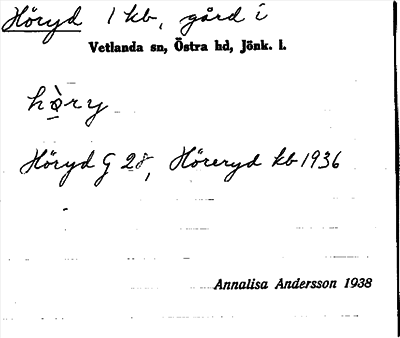 Höryd 1 kb, gård i
Vetlanda sn, Östra hd, Jönk. l.
hø̀ry
Höryd G 28, Höreryd kb 1936
Annalisa Andersson 1938